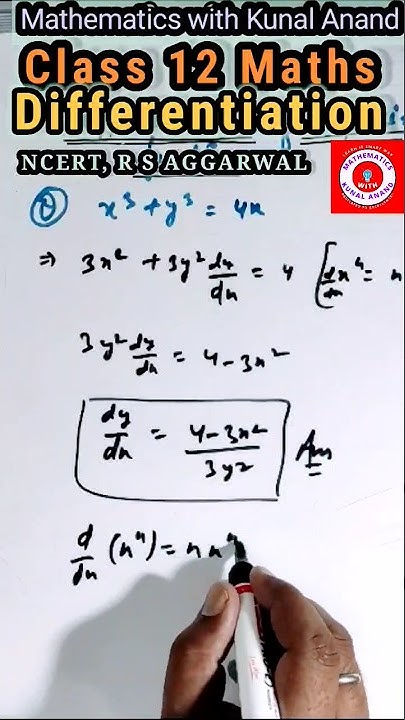 Mathematics with Kunal Anand
Class 12 Maths
Differentiation
NCERT, R S AGGARWAL
MATHEMATICS
WITH
KUNAL ANAND
Q x³ + y³ = 4x
⇒ 3x² + 3y² dy/dx = 4 [d/dx xⁿ = n
3y² dy/dx = 4 - 3x²
dy/dx = 4-3x²/3y² Ans
d/dx (xⁿ) = n xⁿ